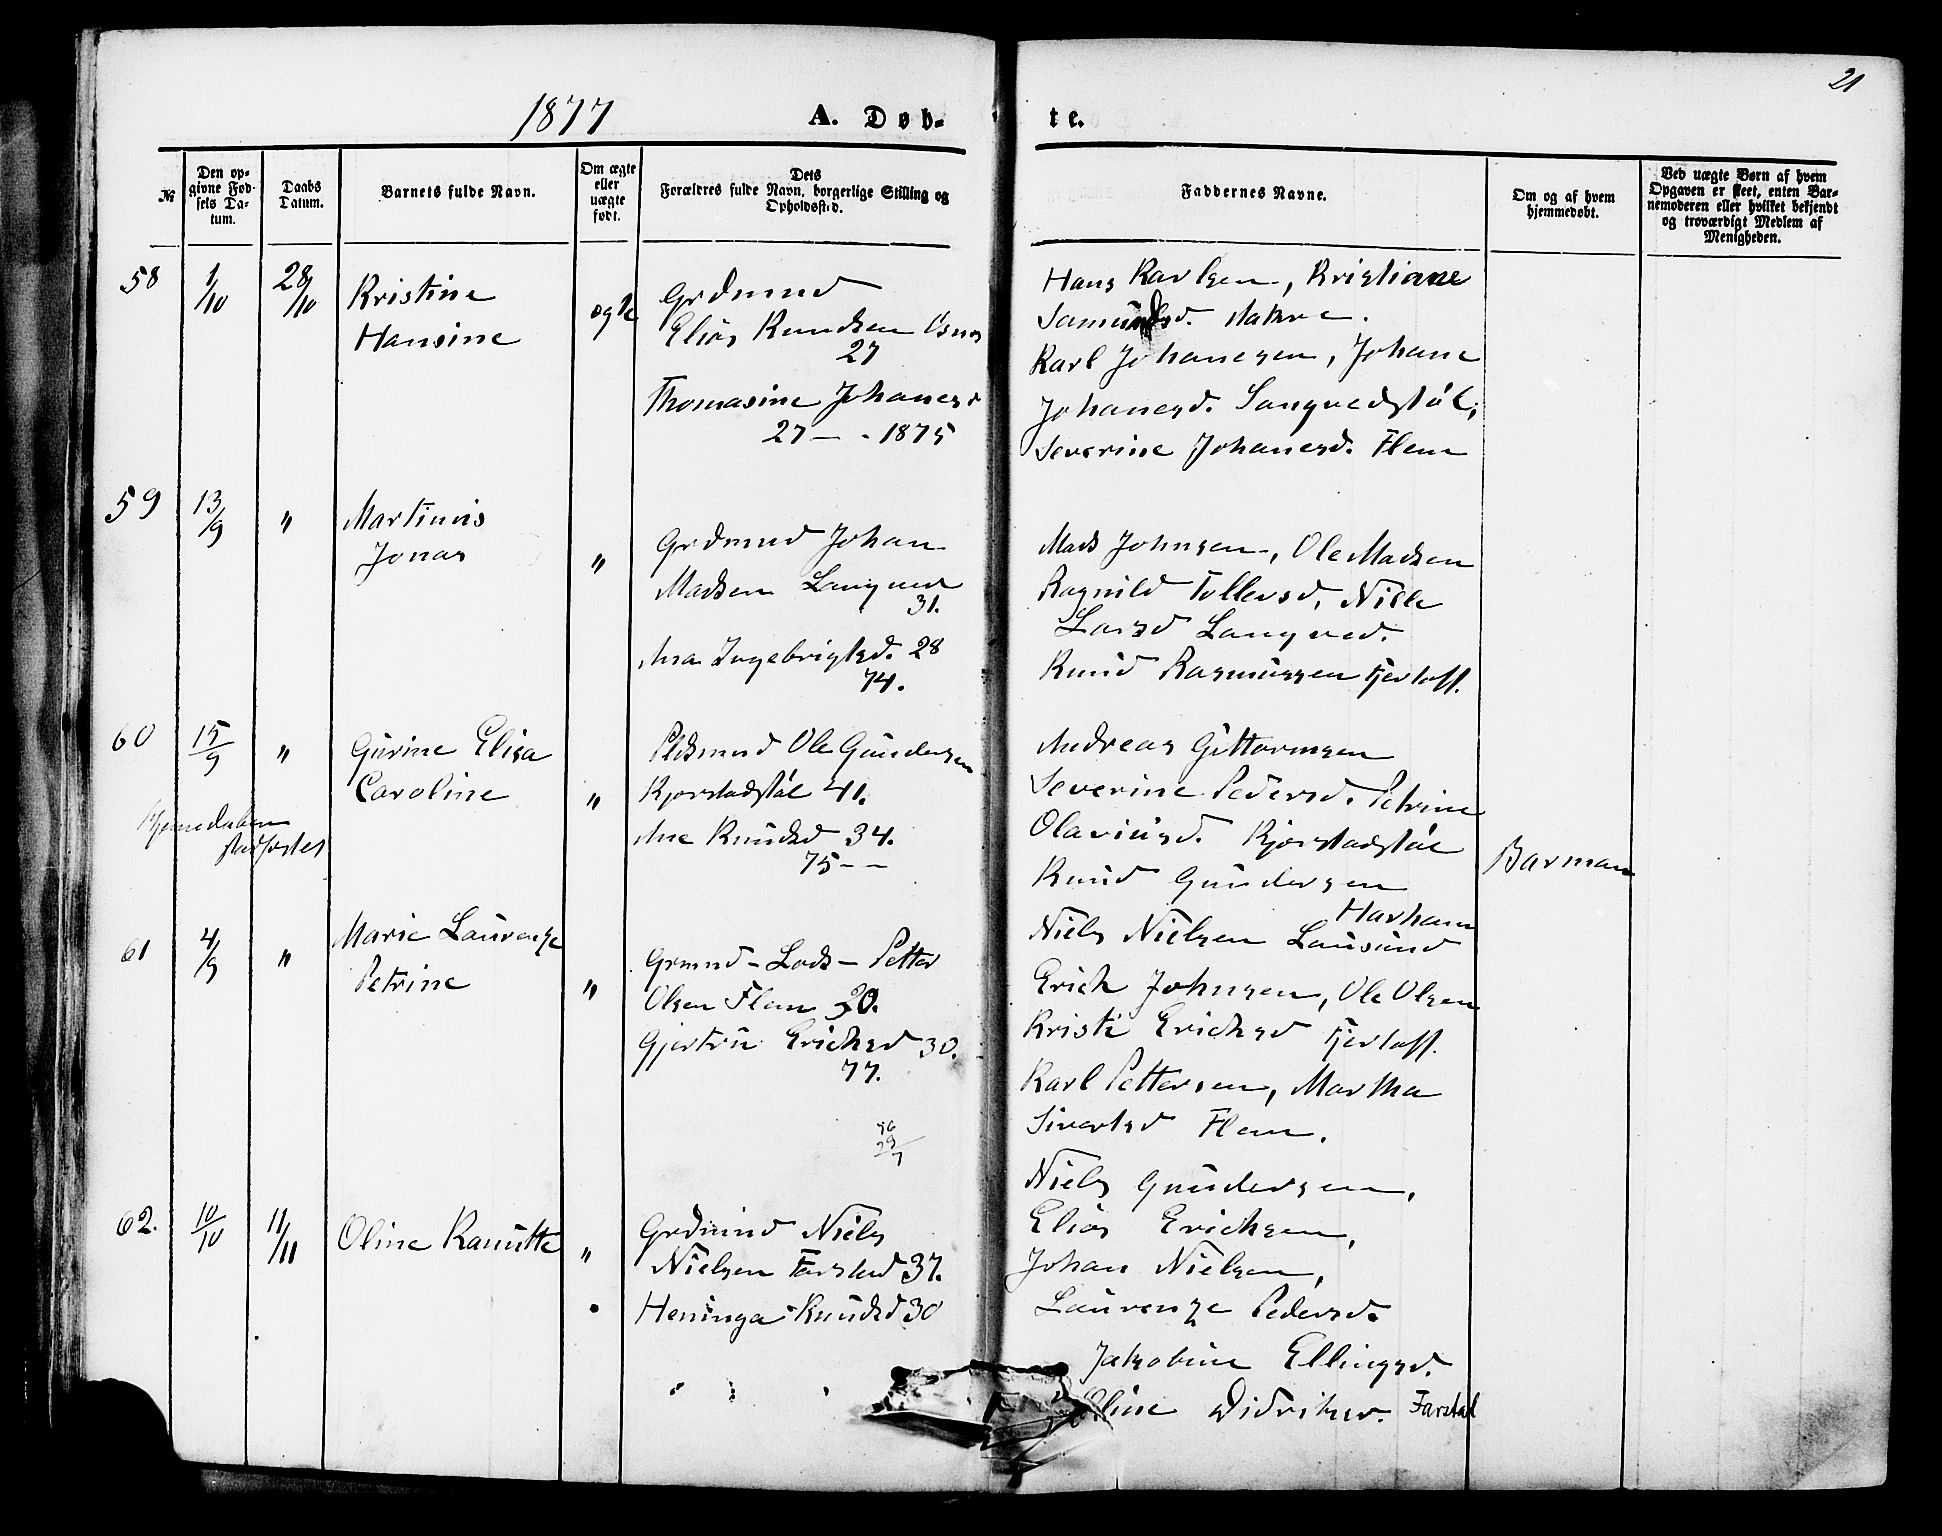 21
1877
A. Døb-
te.
№
Den op-
givne Fød-
sels Da-
tum.
Daabs
Datum.
Barnets fulde Navn.
Om ægte
eller
uægte
født.
Dets
Forældres fulde Navn, borgerlige Stilling og
Opholdssted.
Faddernes Navne.
Om og af hvem
hjemmedøbt.
Ved uægte Børn af hvem
Opgaven er skeet, enten Bar-
nemoderen eller hvilket bekjendt
og troværdigt Medlem af
Menigheden.
58
1/10
28/10
Kristine
Hansine
ægte
Grdmnd
Elias Knudsen Osnes
27
Thomasine Johanesd
27 — - 1875
Hans Karlsen, Kristiane
Samundsd. Hakve.
Karl Johanesen, Johane
Johanesd. Langvedstøl,
Severine Johanesd. Flem
59
13/9
"
Martinus
Jonas
"
Grdmnd Johan
Madsen Langved
31.
Ana Ingebrigtsd. 28
74.
Mads Johnsen, Ole Madsen
Ragnild Tollevsd, Nille
Larsd Langved.
Knud Rasmussen Fjertoft.
60
15/9
"
Gurine Elisa
Caroline
"
Hjemedaaben
stadfæstet
Pldsmnd Ole Gundersen
Kjorstadstøl 41.
Ane Knudsd 34.
75 - -
Andreas Guttormsen
Severine Pedersd. Petrine
Olaviusd. Kjorstadstøl
Knud Gundersen
Harham
Barman
61
4/9
"
Marie Laurenze
Petrine
"
Grmnd - Lods - Petter
Olsen Flem 30.
Gjertru Erichsd 30.
77.
Niels Nielsen Lausund
Erich Johnsen, Ole Olsen
Kristi Erichsd Fjertoft.
Karl Pettersen, Martha
Sivertsd Flem.
62.
10/10
11/11
Oline Kanutte
"
Grdmnd Niels
Nielsen Farstad 37.
Heninga Knudsd 30
Niels Gundersen,
Elias Erichsen,
Johan Nielsen,
Laurenze Pedersd.
Jakobine Ellingsd.
Oline Didriksd. Farstad